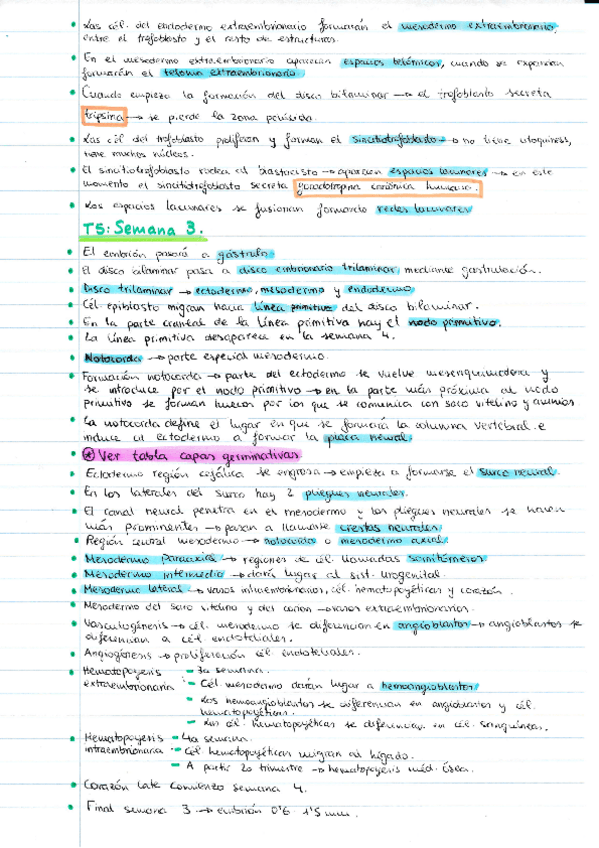 • Las cél. del endodermo extraembrionario formarán el mesodermo extraembrionario,
entre el trofoblasto y el resto de estructuras.
• En el mesodermo extraembrionario aparecen espacios celómicos, cuando se expandan
formarán el celoma extraembrionario.
• Cuando empieza la formación del disco bilaminar → el trofoblasto secreta
tripsina → se pierde la zona pelúcida.
• Las cél del trofoblasto proliferan y forman el sincitiotrofoblasto → no tiene
tiene muchos núcleos.
• El sincitiotrofoblasto rodea al blastocisto → aparecen espacios lacunares → en este
momento el sincitiotrofoblasto secreta gonadotropina coriónica humana.
• Los espacios lacunares se fusionan formando redes lacunares
T5: Semana 3.
• El embrión pasará a gástrula.
• El disco bilaminar pasa a disco embrionario trilaminar, mediante gastrulación.
• Disco trilaminar → ectodermo, mesodermo y endodermo
• Cél epiblasto migran hacia línea primitiva del disco bilaminar.
• En la parte craneal de la línea primitiva hay el nodo primitivo.
• La línea primitiva desaparece en la semana 4.
• Notocorda → parte especial mesodermo.
• Formación notocorda → parte del ectodermo se vuelve mesenquimatosa y
se introduce por el nodo primitivo → en la parte más próxima al nodo
primitivo se forman huecos por los que se comunica con saco vitelino y amnios.
• La notocorda define el lugar en que se formará la columna vertebral e
induce al ectodermo a formar la placa neural.
• ⊛ Ver tabla capas germinativas
• Ectodermo región cefálica se engrosa → empieza a formarse el surco neural.
• En los laterales del surco hay 2 pliegues neurales.
• El canal neural penetra en el mesodermo y los pliegues neurales se hacen
más prominentes → pasan a llamarse crestas neurales
• Región central mesodermo → notocorda o mesodermo axial.
• Mesodermo Paraaxial → regiones de cél. llamadas somitómeros
• Mesodermo intermedio → dará lugar al sist. urogenital.
• Mesodermo lateral → vasos intraembrionarios, cél. hematopoyéticas y corazón.
• Mesodermo del saco vitelino y del corion → vasos extraembrionarios.
• Vasculogénesis → cél. mesodermo se diferencian en angioblastos → angioblastos se
diferencian a cél endoteliales.
• Angiogénesis → proliferación cél. endoteliales.
• Hematopoyesis - 3a semana.
extraembrionaria - Cél. mesodermo darán lugar a hemoangioblastos
- Los hemoangioblastos se diferencian en angioblastos y cél.
hematopoyéticas.
- Las cél. hematopoyéticas se diferencian en cél. sanguíneas.
• Hematopoyesis - 4a semana.
intraembrionaria - Cél hematopoyéticas migran al hígado.
- A partir 2o trimestre → hematopoyesis méd. ósea.
• Corazón late comienzo semana 4.
• Final semana 3 → embrión 0'6 1'5 mm.